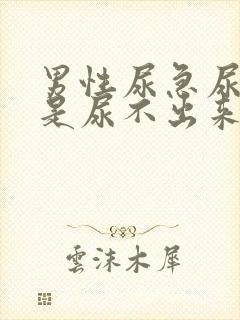 男性尿急尿
是尿不出来
雲沫木犀